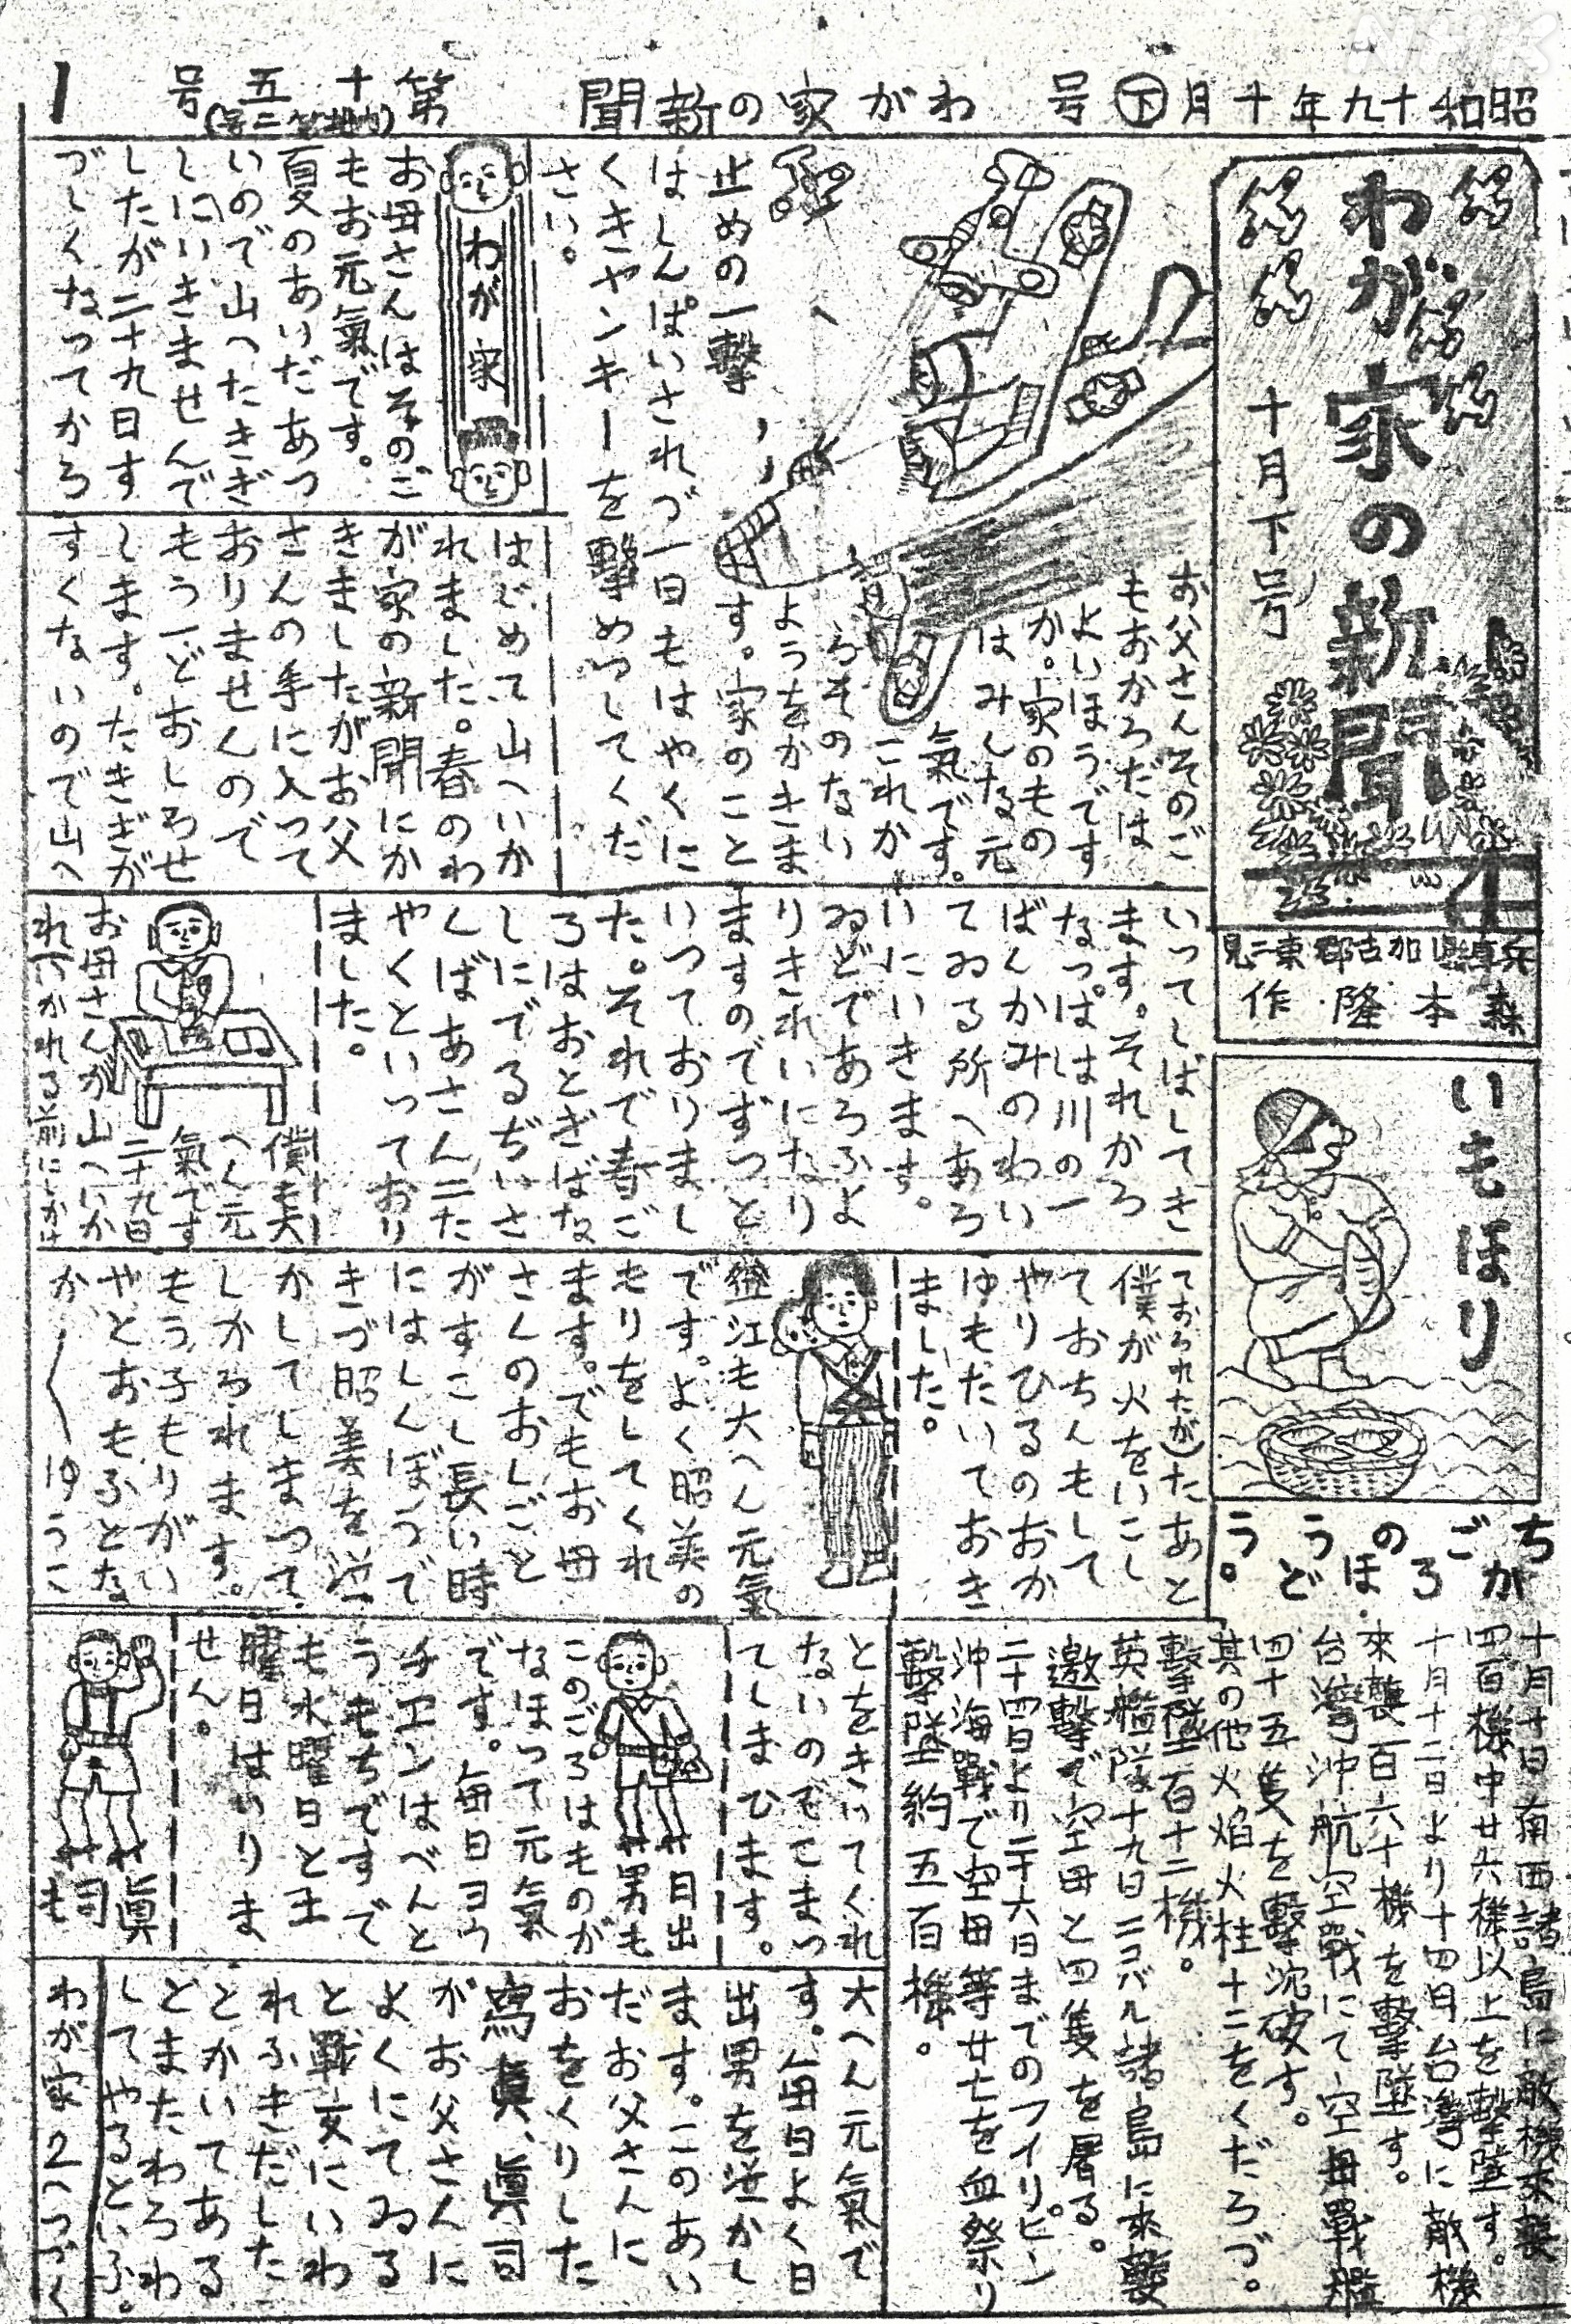 NHK
昭和十九年十月下号 わがの家新聞 第十五号 1
(内地第二号)
わが家の新聞
十月下号
兵庫県加古郡東二見
森本隆作
お父さんそのご
もおからだは
よいほうです
か。家のもの
はみんな元
氣です。
これか
らそのない
ようをかきま
す。家のこと
はしんぱいされづ一日もはやくに
くきヤンキーを撃めつしてくだ
さい。
止めの一撃
わが家
お母さんはそのご
もお元氣です。
夏のあいだあつ
いので山へたきぎ
しにいきませんで
したが二十九日す
づしくなってから
はじめて山へいか
れました。春のわ
が家の新聞にか
きましたがお父
さんの手に入って
おりませんので
もう一どおしらせ
します。たきぎが
すくないので山へ
いってしばしてき
ます。それから
なっぱは川の一
ばんかみのわい
てゐる所へあら
いにいきます。
ゐどであらふよ
りきれいになり
ますのでずつと
いつておりまし
た。それで春ご
ろはおとぎばな
しにでるぢいさ
んばあさん二た
やくといっており
ました。
僕も大
へん元
氣です
二十九日
お母さんが山へいか
れ(いかれる前にしかけ
ておられたが)たあと
僕が火をいこし
ておちんもして
やりひるのおか
ゆもたいておき
ました。
澄江も大へん元氣
です。よく昭美の
もりをしてくれ
ます。でもお母
さんのおしごと
がすこし長い時
にはしんぼうで
きづ昭美を泣
かしてしまつて
しかられます。
もう子もりがい
やとおもふとな
か〳〵ゆうこ
とをきいてくれ
ないのでこまっ
てしまひます。
日出
男も
このごろはものが
なほつて元氣
です。毎日ヨウ
チエンはべんと
うもちですで
も水曜日と土
曜日はいりま
せん。
眞
司も
大へん元氣で
す。毎日よく日
出男を泣かし
ます。このあい
だお父さんに
おをくりした
寫眞、眞司
がお父さんに
よくにてゐる
と戰友にいわ
れふきだした
とかいてある
とまたわらわ
してやるといふ。
わが家2へつづく
いもほり
ちかごろのほうどう。
十月十日南西諸島に敵機來襲
四百機中廿六機以上を撃墜す。
十月十二日より十四日台湾に敵機
來襲百六十機を撃墜す。
台湾沖航空戰にて空母戰艦
四十五隻を撃沈破す。
其の他火焔火柱十二をくだらづ。
撃墜百十二機。
英艦隊十九日ニコバル諸島に來襲
邀撃で空母と四隻を屠る。
二十四日より二十六日までのフイリピン
沖海戰で空母等廿七を血祭り
撃墜約五百機。